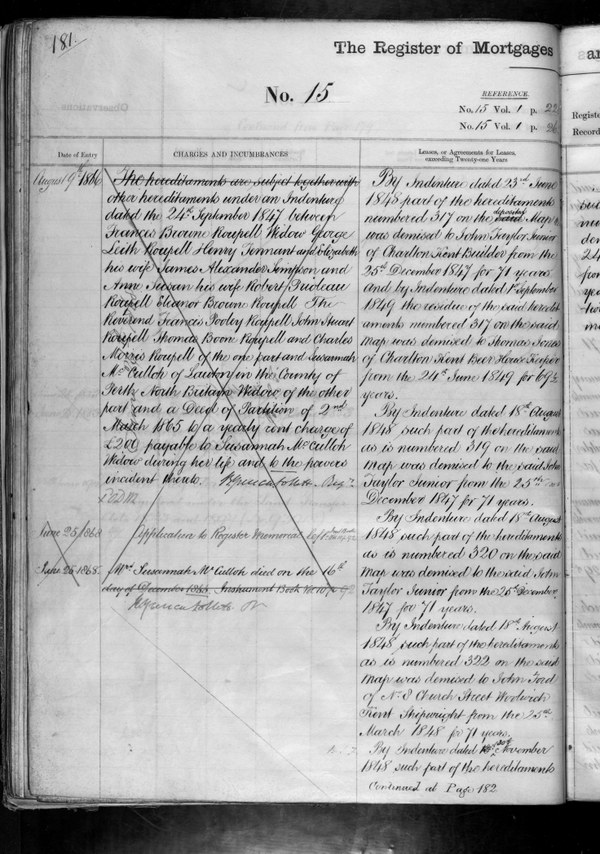 181.
The Register of Mortgages
an
No. 15
REFERENCE.
No. 15 Vol. 1 p. 22
No. 15 Vol. 1 p. 26
Date of Entry
CHARGES AND INCUMBRANCES
Leases, or Agreements for Leases,
exceeding Twenty-one Years
Registe
Record
August 9th 1866
The hereditaments are subject together with
other hereditaments under an Indenture
dated the 24th September 1847 between
Frances Brown Roupell Widow George
Leith Roupell Henry Tennant and Elizabeth
his wife James Alexander Simpson and
Ann Susan his wife Robert Prioleau
Roupell Eleanor Brown Roupell The
Reverend Francis Pooley Roupell John Stuart
Roupell Thomas Boon Roupell and Charles
Morris Roupell of the one part and Susannah
McCulloh of in the County of
Perth North Britain Widow of the other
part and a Deed of Partition of 2nd
March 1865 to a yearly rent charge of
£200 payable to Susannah McCulloh
Widow during her life and to the powers
incident thereto.
June 25/1868
Application to Register Memorial
June 26 1868.
Mrs Susannah McCulloh died on the 16th
day of December 1868. Instrument Book
By Indenture dated 23rd June
1848 part of the hereditaments
numbered 317 on the deposited Map
was demised to John Taylor Junior
of Charlton Kent Builder from the
25th December 1847 for 71 years
and by Indenture dated 1st September
1849 the residue of the said heredit
aments numbered 317 on the said
map was demised to Thomas
of Charlton Kent Beer House Keeper
from the 24th June 1849 for 69½
years.
By Indenture dated 18th August
1848 such part of the hereditaments
as is numbered 319 on the said
map was demised to the said John
Taylor Junior from the 25th
December 1847 for 71 years.
By Indenture dated 18th August
1848 such part of the hereditaments
as is numbered 320 on the said
map was demised to the said John
Taylor Junior from the 25th December
1847 for 71 years.
By Indenture dated 18th August
1848 such part of the hereditaments
as is numbered 322 on the said
map was demised to John Ford
of No 8 Church Street Woolwich
Kent Shipwright from the 25th
March 1848 for 71 years.
By Indenture dated November
1848 such part of the hereditaments
Continued at Page 182